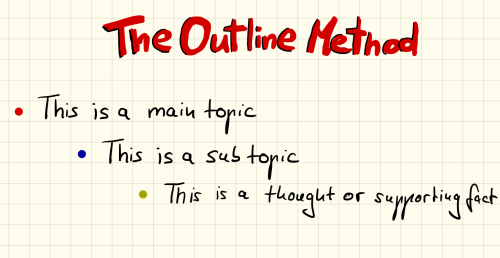 The Outline Method
• This is a main topic
• This is a sub topic
• This is a thought or supporting fact